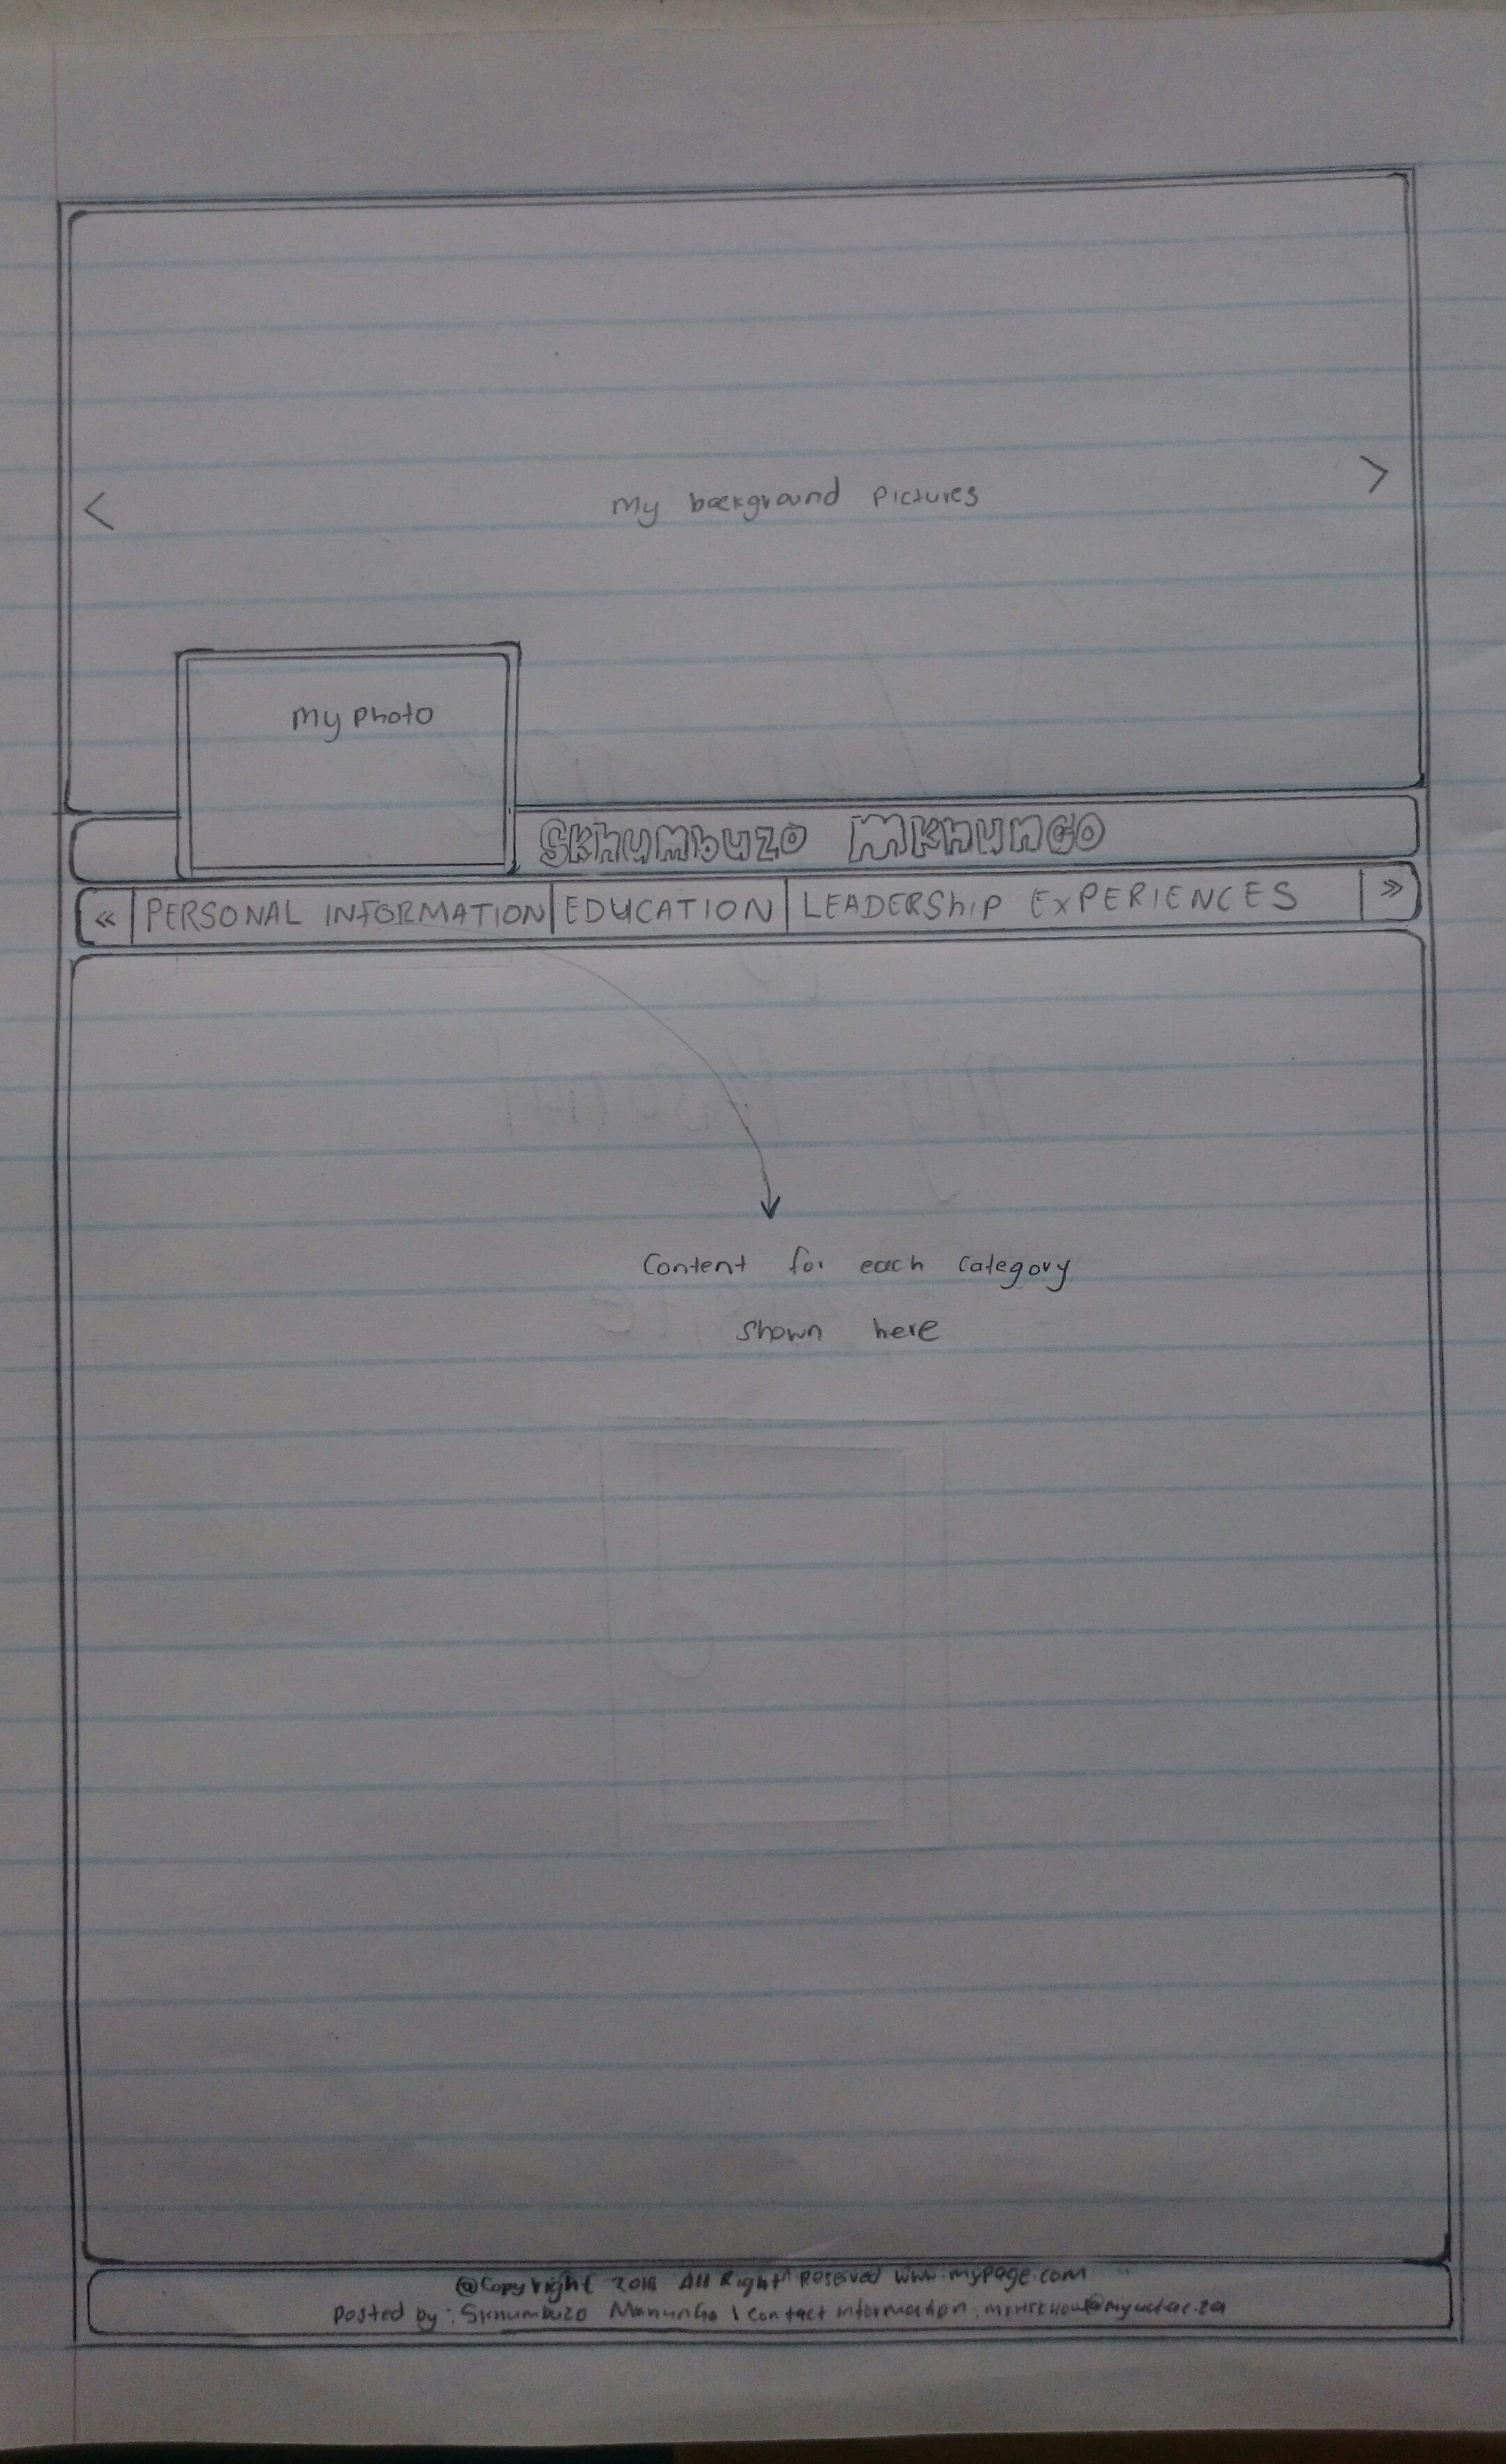 <
my background pictures
>
my photo
Skhumbuzo Mkhungo
« PERSONAL INFORMATION EDUCATION LEADERShIP ExPERIENCES »
Content for each category
shown here
@Copyright All Right Reserved www.mypage.com
Posted by: Skhumbuzo | Contact information: